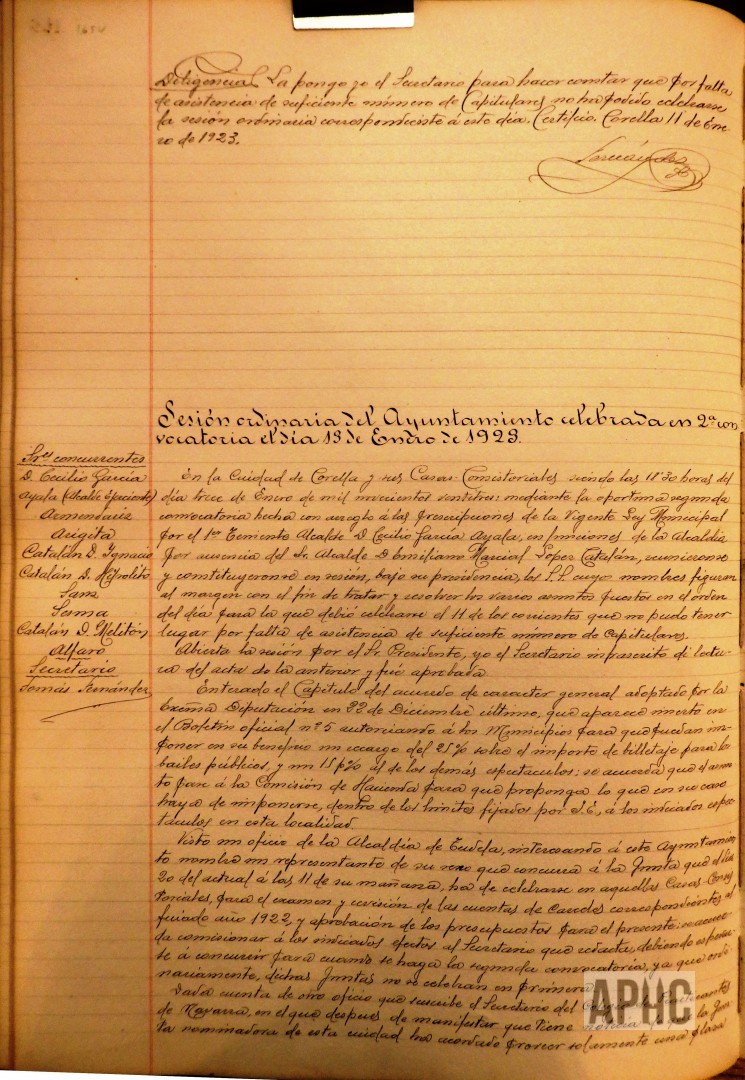 Diligencia. La pongo yo el Secretario para hacer constar que por falta
de asistencia de suficiente número de Capitulares no ha podido celebrarse
la sesión ordinaria correspondiente á este día. Certifico. Corella 11 de Ene-
ro de 1923.
Sesión ordinaria del Ayuntamiento celebrada en 2ª con
vocatoria el día 13 de Enero de 1923.
Sres concurrentes
D. Cecilio García
Ayala (Alcalde Ejerciente)
Armendariz
Argita
Catalán D. Ignacio
Catalán D. Hipolito
Sanz
Sama
Catalán D. Melitón
Alfaro
Secretario
Tomás Fernández
En la Ciudad de Corella y sus Casas Consistoriales siendo las 18'30 horas del
día trece de Enero de mil novecientos veintitres: mediante la oportuna segunda
convocatoria hecha con arreglo á las prescripciones de la Vigente Ley Municipal
por el 1er Teniente Alcalde D. Cecilio García Ayala, en funciones de la Alcaldía
por ausencia del Sr. Alcalde D. Emiliano Marcial López Catalán, reunieronse
y constituyeronse en sesión, bajo su presidencia, los S.S. cuyos nombres figuran
al margen con el fin de tratar y resolver los varios asuntos puestos en el orden
del día para la que debió celebrarse el 11 de los corrientes que no pudo tener
lugar por falta de asistencia de suficiente número de Capitulares.
Abierta la sesión por el Sr. Presidente, yo el Secretario infrascrito dí lectu-
ra del acta de la anterior y fué aprobada.
Enterado el Capítulo del acuerdo de caracter general adoptado por la
Excma Diputación en 22 de Diciembre último, que aparece inserto en
el Boletín oficial nº 5 autorizando á los Municipios para que puedan im-
poner en su beneficio un recargo del 25% sobre el importe de billetaje para los
bailes públicos, y un 15 p% al de los demás espectaculos; se acuerda que el asun-
to pase á la Comisión de Hacienda para que proponga lo que en su caso
haya de imponerse, dentro de los límites fijados por S.E., á los indicados espec-
táculos en esta localidad.
Visto un oficio de la Alcaldía de Tudela, interesando á este Ayuntamien-
to nombre un representante de su seno que concurra á la Junta que el día
20 del actual á las 11 de su mañana, ha de celebrarse en aquellas Casas Consis-
toriales, para el examen y revisión de las cuentas de Carceles correspondientes al
finado año 1922, y aprobación de los presupuestos para el presente: se acuer-
da comisionar á los indicados efectos al Secretario que redacta, debiendo esperar-
se á concurrir para cuando se haga la segunda convocatoria, ya que ordi-
nariamente, dichas Juntas no se celebran en primera.
Dada cuenta de otro oficio que suscribe el Secretario del
de Navarra, en el que después de manifestar que tiene noticia la Jun-
ta nominadora de esta ciudad ha acordado proveer solamente una plaza
APHC